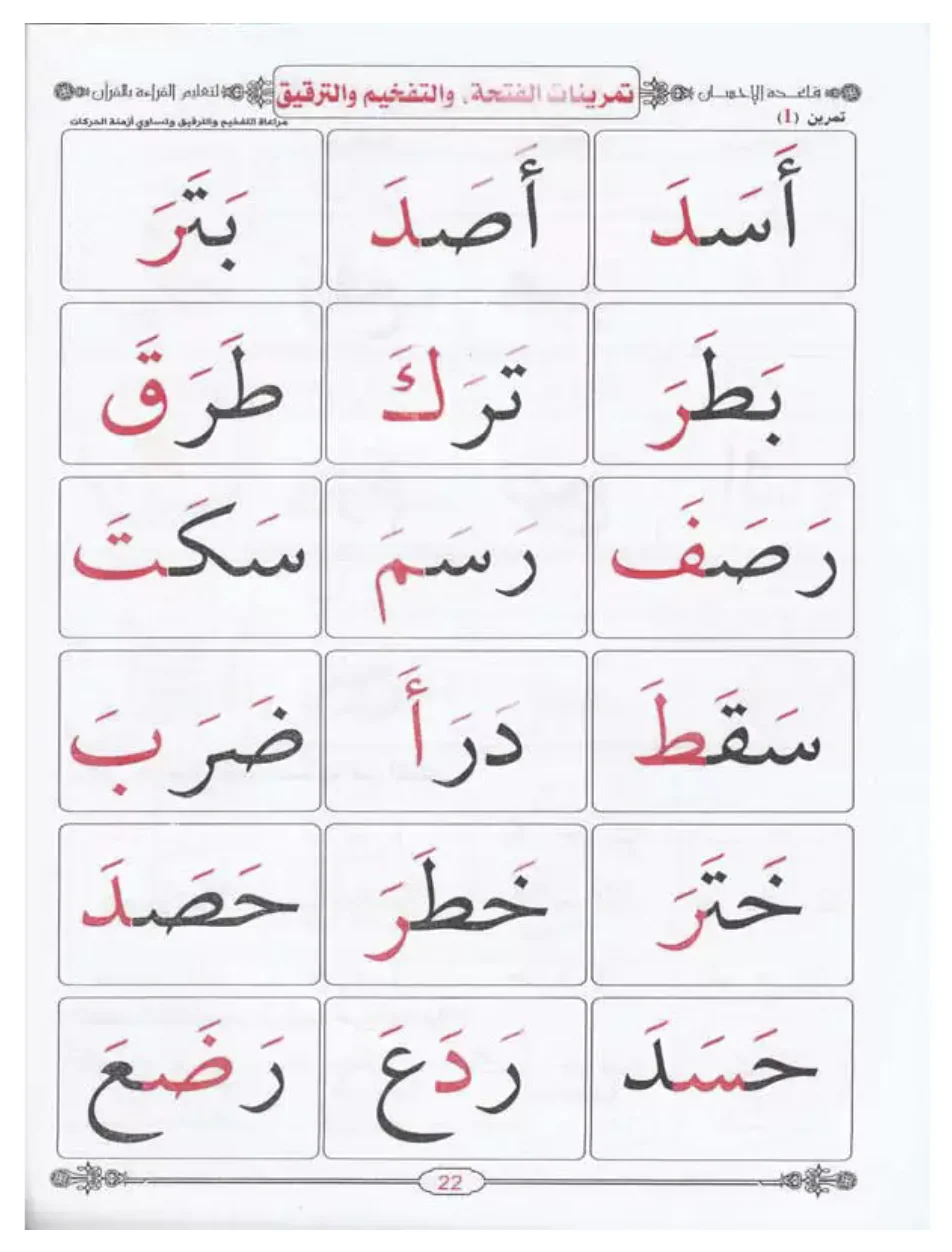 قاعدة الإحسان تمرينات الفتحة، والتفخيم والترقيق لتعليم القراءة بالقرآن
تمرين (1) مراعاة التفخيم والترقيق وتساوي أزمنة الحركات
أَسَدَ أَصَدَ بَتَرَ
بَطَرَ تَرَكَ طَرَقَ
رَصَفَ رَسَمَ سَكَتَ
سَقَطَ دَرَأَ ضَرَبَ
خَتَرَ خَطَرَ حَصَدَ
حَسَدَ رَدَعَ رَضَعَ
22